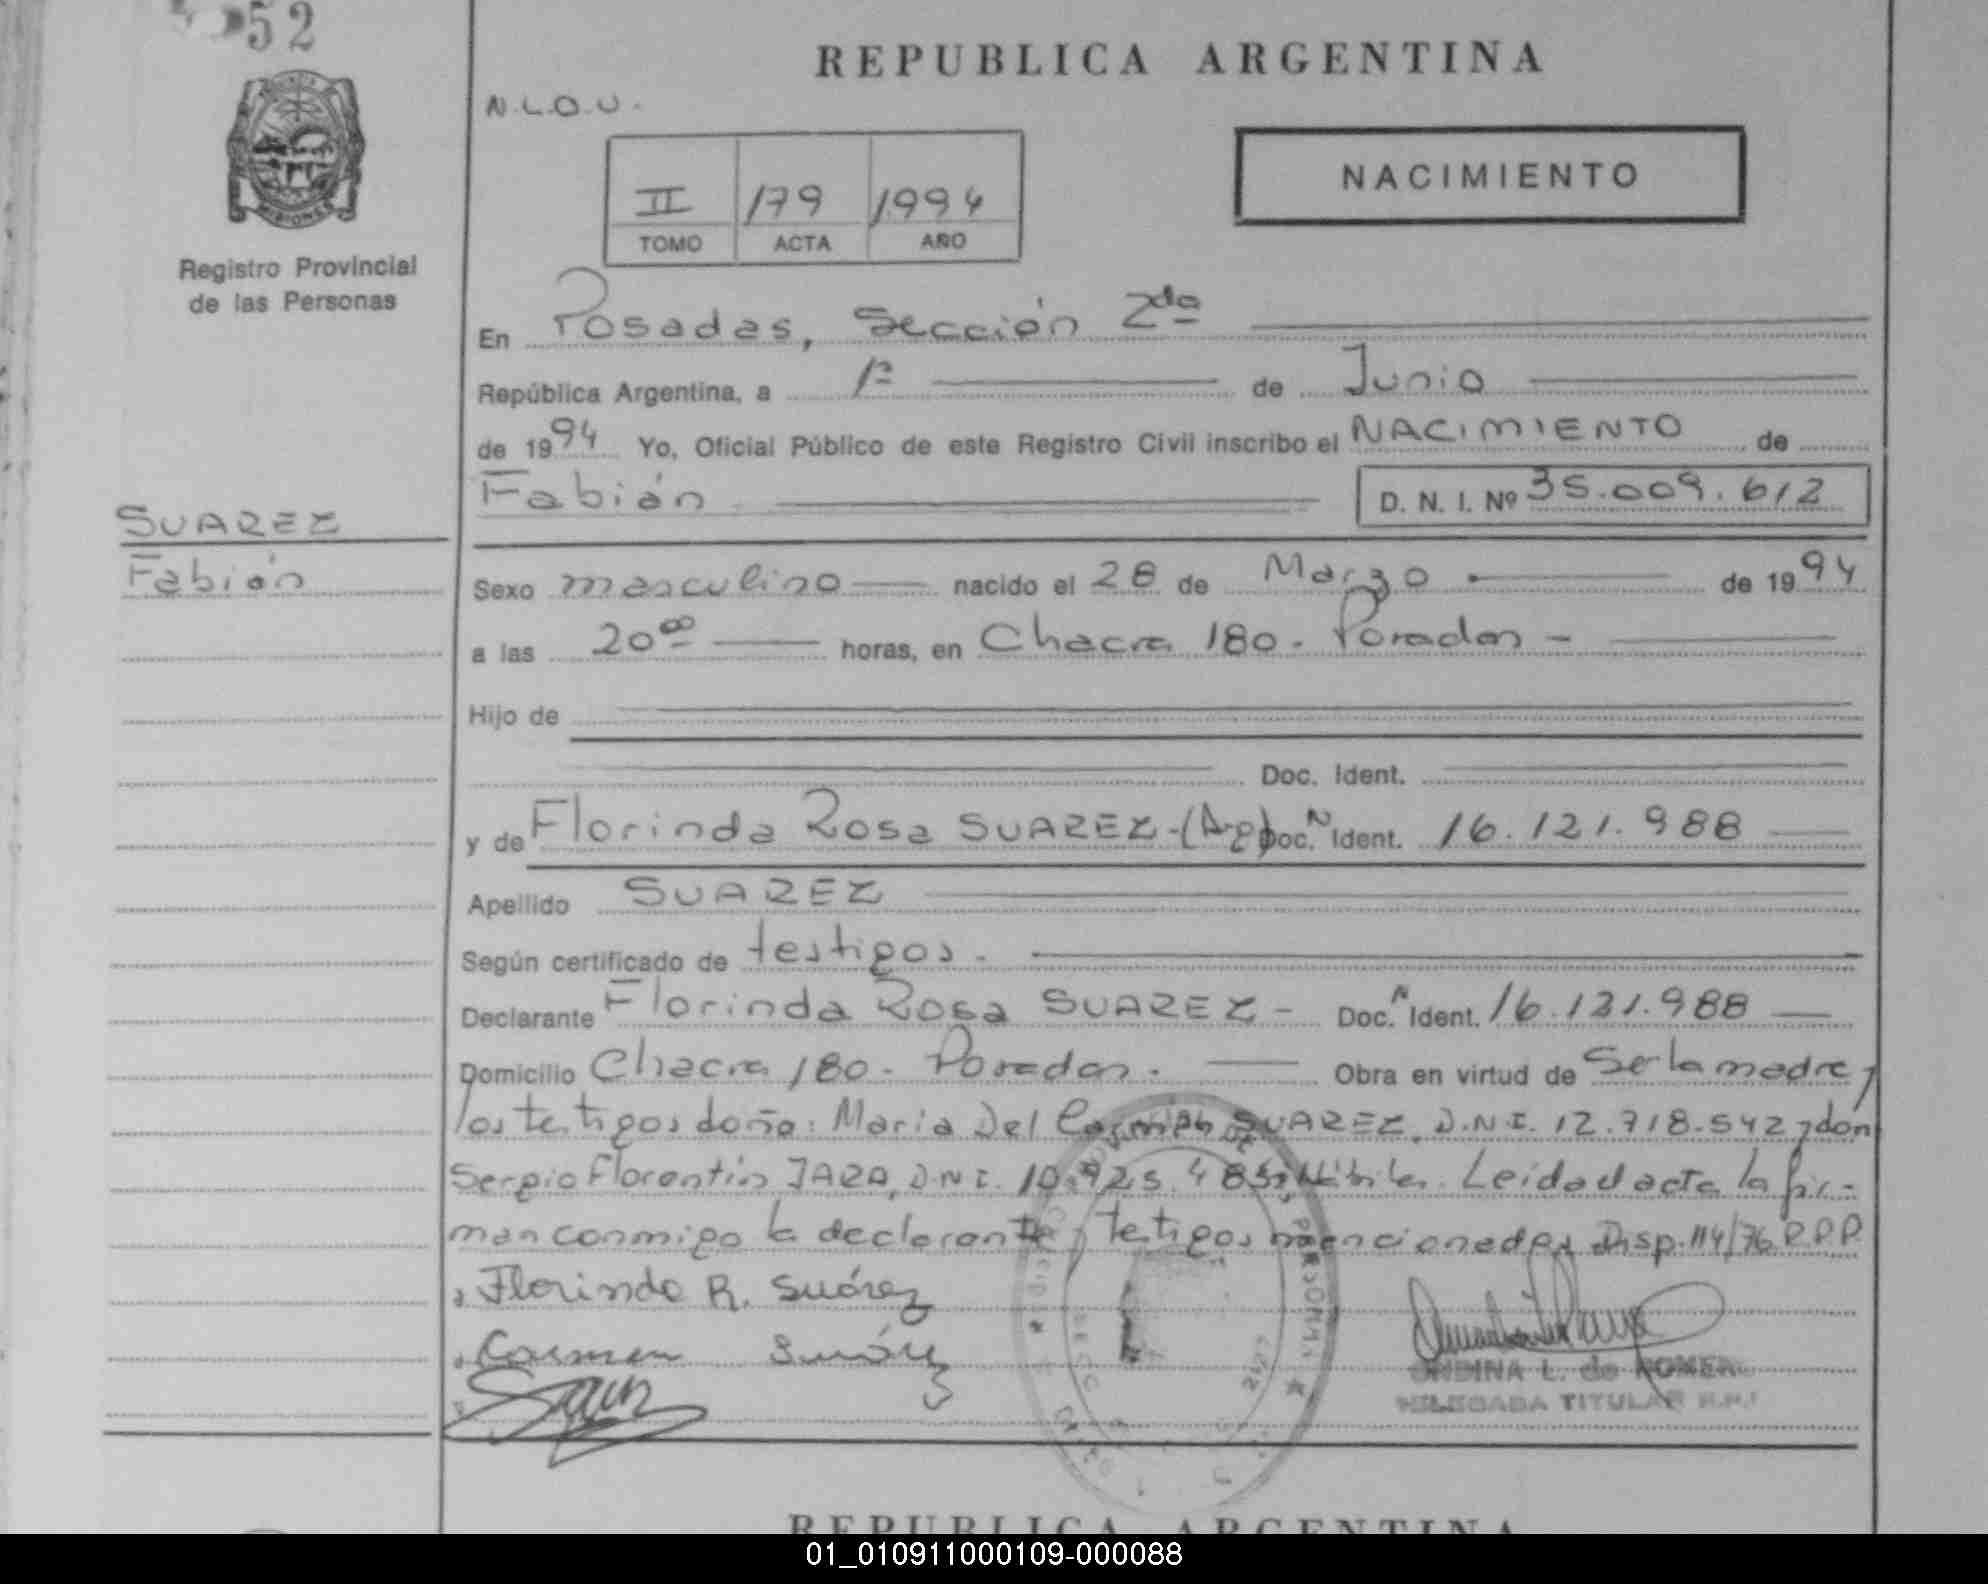 52
REPUBLICA ARGENTINA
N.L.O.U.
MISIONES
II 179 1994
TOMO ACTA AÑO
NACIMIENTO
Registro Provincial
de las Personas
En Posadas, Sección 2da
República Argentina, a 1º de Junio
de 1994 Yo, Oficial Público de este Registro Civil inscribo el NACIMIENTO de
Fabián D. N. I. Nº 35.009.612
SUAREZ
Fabián
Sexo masculino nacido el 28 de Marzo de 1994
a las 20 00 horas, en Chacra 180 - Posadas -
Hijo de
Doc. Ident.
y de Florinda Rosa SUAREZ - (Arg) Doc. Ident. 16.121.988
Apellido SUAREZ
Según certificado de testigos.
Declarante Florinda Rosa SUAREZ - Doc. Ident. 16.121.988
Domicilio Chacra 180 - Posadas. Obra en virtud de Ser la madre y
los testigos doña: Maria Del Carmen SUAREZ, D.N.I. 12.718.542 y don
Sergio Florentín JARA, D.N.I. 10.925.485, Hábiles. Leida el acta la fir-
man conmigo la declarante y testigos mencionados Disp. 114/76 R.P.P
Florinda R. Suárez
Carmen Suárez
ONDINA L. de ROMERO
DELEGADA TITULAR R.P.P.
REPUBLICA ARGENTINA
01_010911000109-000088